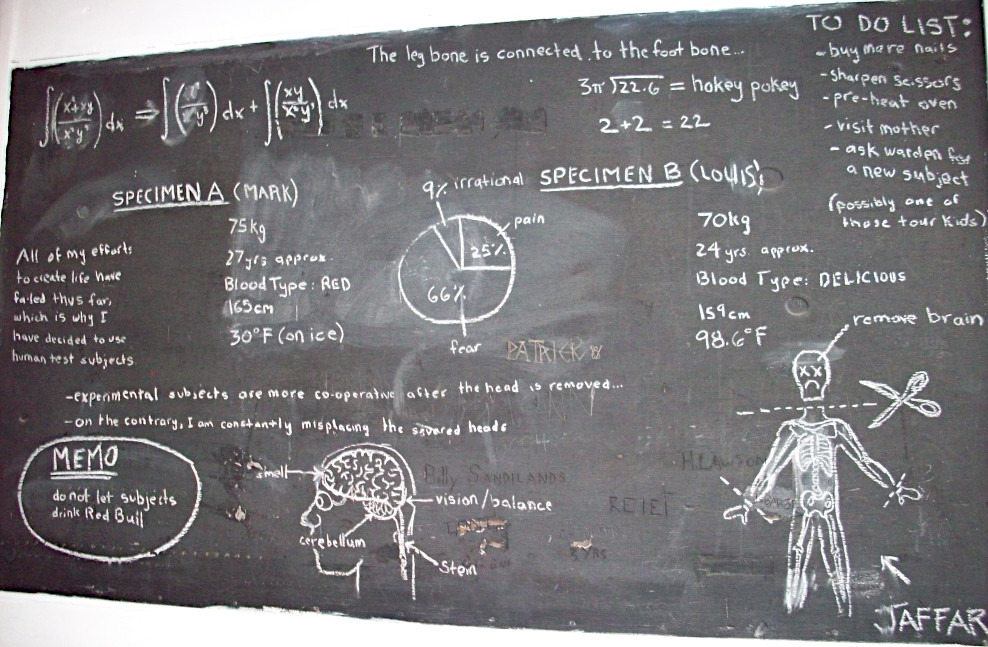 The leg bone is connected to the foot bone...
TO DO LIST:
-buy more nails
-sharpen scissors
-pre-heat oven
-visit mother
-ask warden for
a new subject
(possibly one of
those tour kids)
∫(x²+xy / x²y²) dx ⇒ ∫( / ) dx + ∫(xy / x²y²) dx
3π√22.6 = hokey pokey
2+2 = 22
SPECIMEN A (MARK)
75kg
27yrs approx.
Blood Type: RED
165cm
30°F (on ice)
All of my efforts
to create life have
failed thus far,
which is why I
have decided to use
human test subjects
9% irrational
pain
25%
66%
fear
SPECIMEN B (LOUIS)
70kg
24 yrs. approx.
Blood Type: DELICIOUS
159cm
98.6°F
PATRICK
remove brain
xx
-experimental subjects are more co-operative after the head is removed...
-on the contrary, I am constantly misplacing the severed heads
MEMO
do not let subjects
drink Red Bull
smell
vision/balance
cerebellum
Stem
SANDILANDS
H.LAWSON
JAFFAR